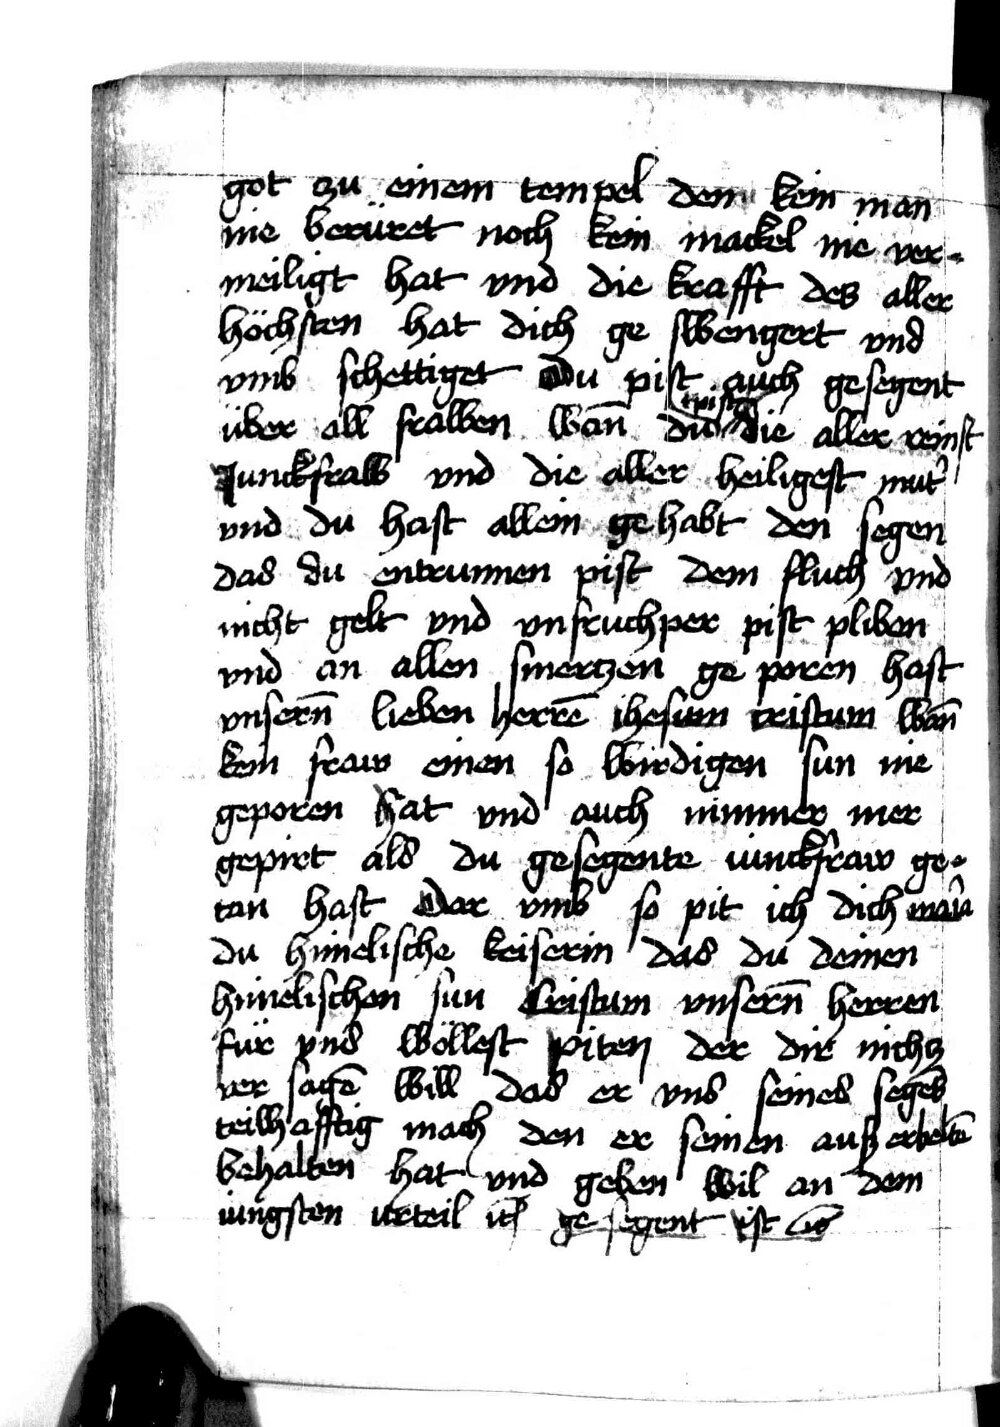 got zu einem tempel dem kein man
nie berüret noch kein mackel nie ver-
meiligt hat vnd die krafft des aller
höchsten hat dich ge swengert vnd
vmb schettiget Du pist auch gesegent
über all frawen wañ du pist die aller reinst
Junckfraw vnd die aller heiligest mut̓
vnd du hast allein gehabt den segen
das du entrunnen pist dem fluch vnd
nicht gelt vnd vnfruchper pist pliben
vnd an allen smertzen ge poren hast
vnserñ lieben herrē ihesum cristum wañ
kein fraw einen so wirdigen sun nie
geporen hat vnd auch nimmer mer
gepirt als du gesegente iunckfraw ge-
tan hast Dar vmb so pit ich dich maria
du himelische keiserin das du deinen
himelischen sun Cristum vnserñ herren
für vns wöllest piten der dir nichtz
ver sagē will das er vns seines segēs
teilhafftig mach den er seinen auß erbeltē
behalten hat vnd geben wil an dem
iungsten vrteil ge segent ist